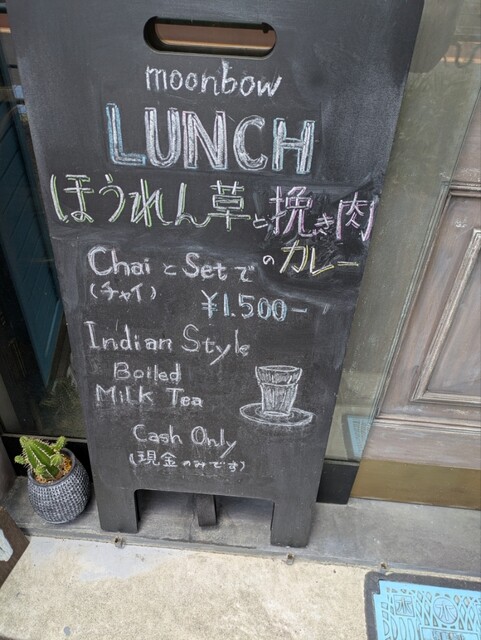 moonbow
LUNCH
ほうれん草と挽き肉
のカレー
Chai と Setで
(チャイ)
¥1.500-
Indian Style
Boiled
Milk Tea
Cash Only
(現金のみです)